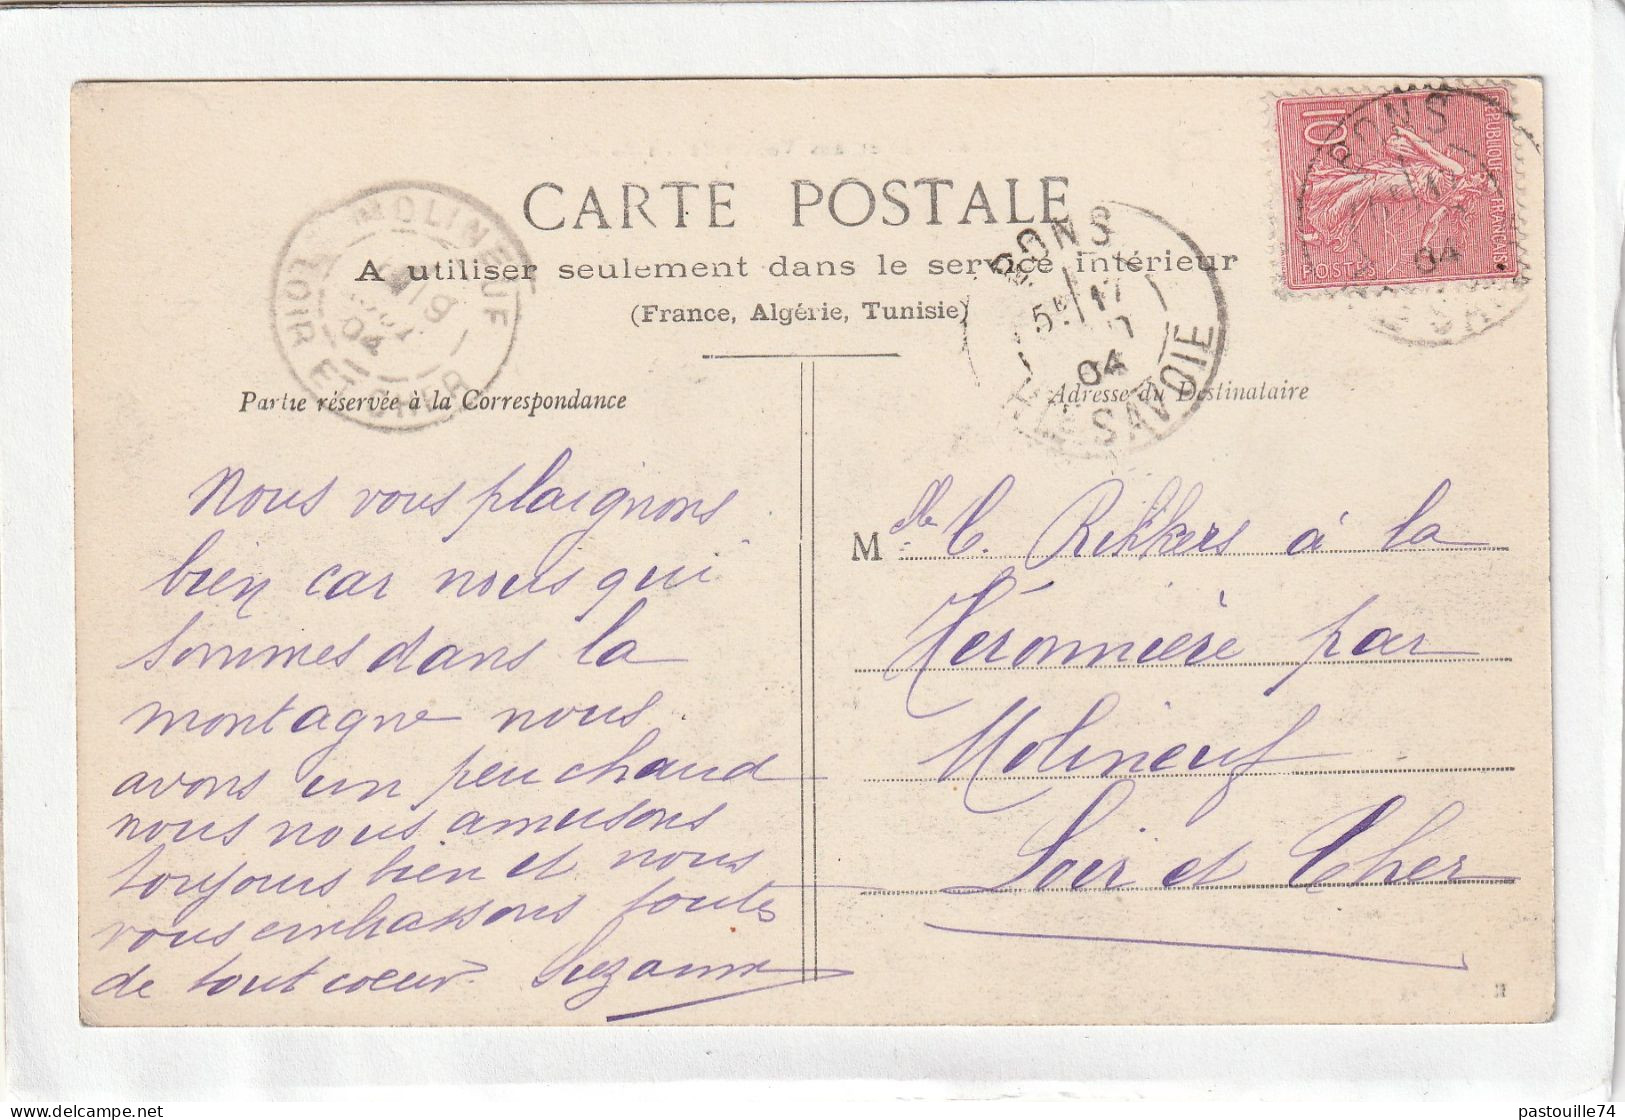 CARTE POSTALE
A utiliser seulement dans le service intérieur
(France, Algérie, Tunisie)
MOLINEUF
LOIR ET CHER
19
04
PONS
5E 17
04
SAVOIE
REPUBLIQUE FRANÇAISE
10c
POSTES
PONS
04
Partie réservée à la Correspondance
Adresse du Destinataire
Nous vous plaignons
bien car nous qui
sommes dans la
montagne nous
avons un peu chaud
nous nous amusons
toujours bien et nous
vous embrassons toutes
de tout coeur. Suzanne
Melle C. Rikkers à la
Héronnière par
Molineuf
Loir et Cher
pastouille74